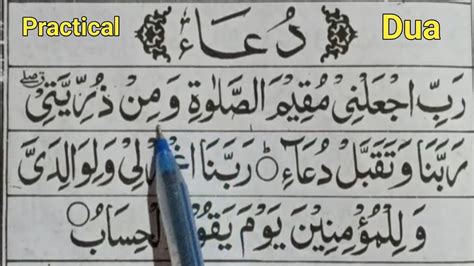 Practical
Dua
دُعَاء
رَبِّ اجْعَلْنِيْ مُقِيْمَ الصَّلٰوةِ وَمِنْ ذُرِّيَّتِيْ
رَبَّنَا وَتَقَبَّلْ دُعَآءِ رَبَّنَا اغْفِرْلِيْ وَلِوَالِدَيَّ
وَلِلْمُؤْمِنِيْنَ يَوْمَ يَقُوْمُ الْحِسَابُ